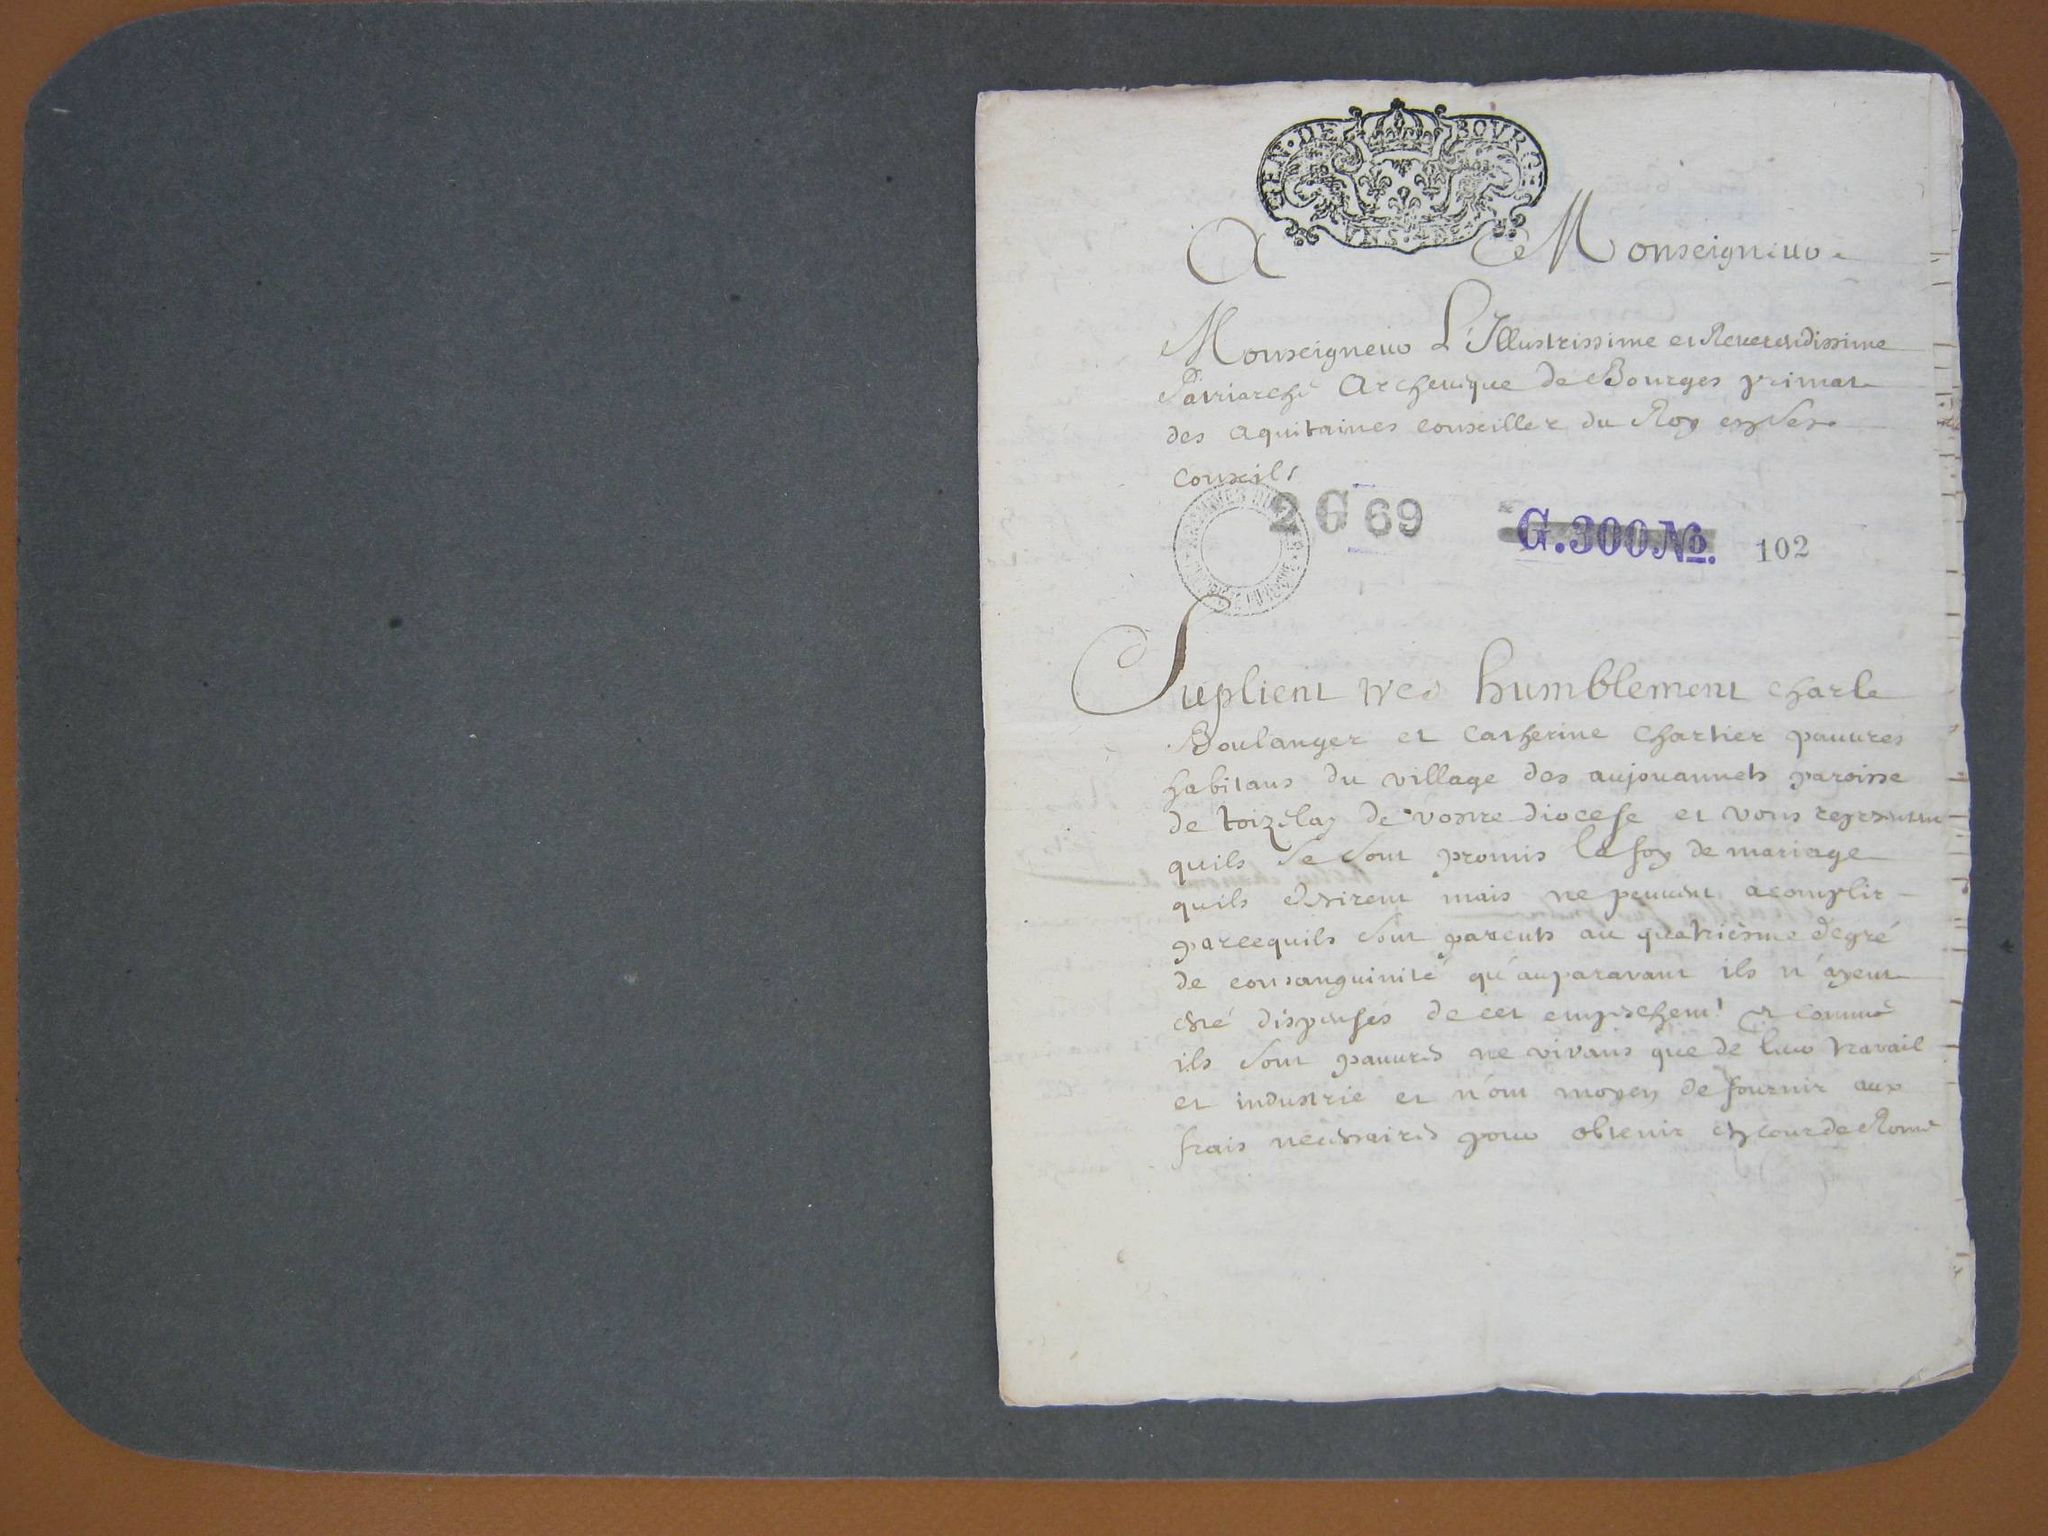 GEN. DE BOVRGES
A Monseigneur
Monseigneur L'Illustrissime et Reverendissime
Patriarche Archeuêque de Bourges primat
des aquitaines conseiller du Roy en Ses
conseils
2 G 69 G.300 No. 102
Suplient tres humblement charle
Boulanger et Catherine Chartier pauures
habitans du village des aujouannets paroisse
de toizelay de vostre diocese et vous
quils se sont promis la foy de mariage
quils desirent mais ne peuuent acomplir
parcequils sont parents au quatriesme degré
de consanguinité qu'auparavant ils n'ayent
esté dispensés de cet empeschemt et comme
ils sont pauures ne vivans que de leur travail
et industrie et n'ont moyen de fournir aux
frais necessaires pour obtenir en cour de Rome